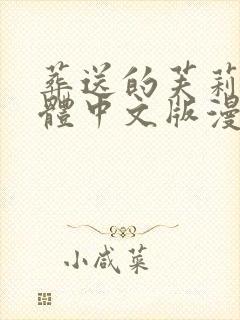 葬送的芙莉
體中文版漫
小咸菜